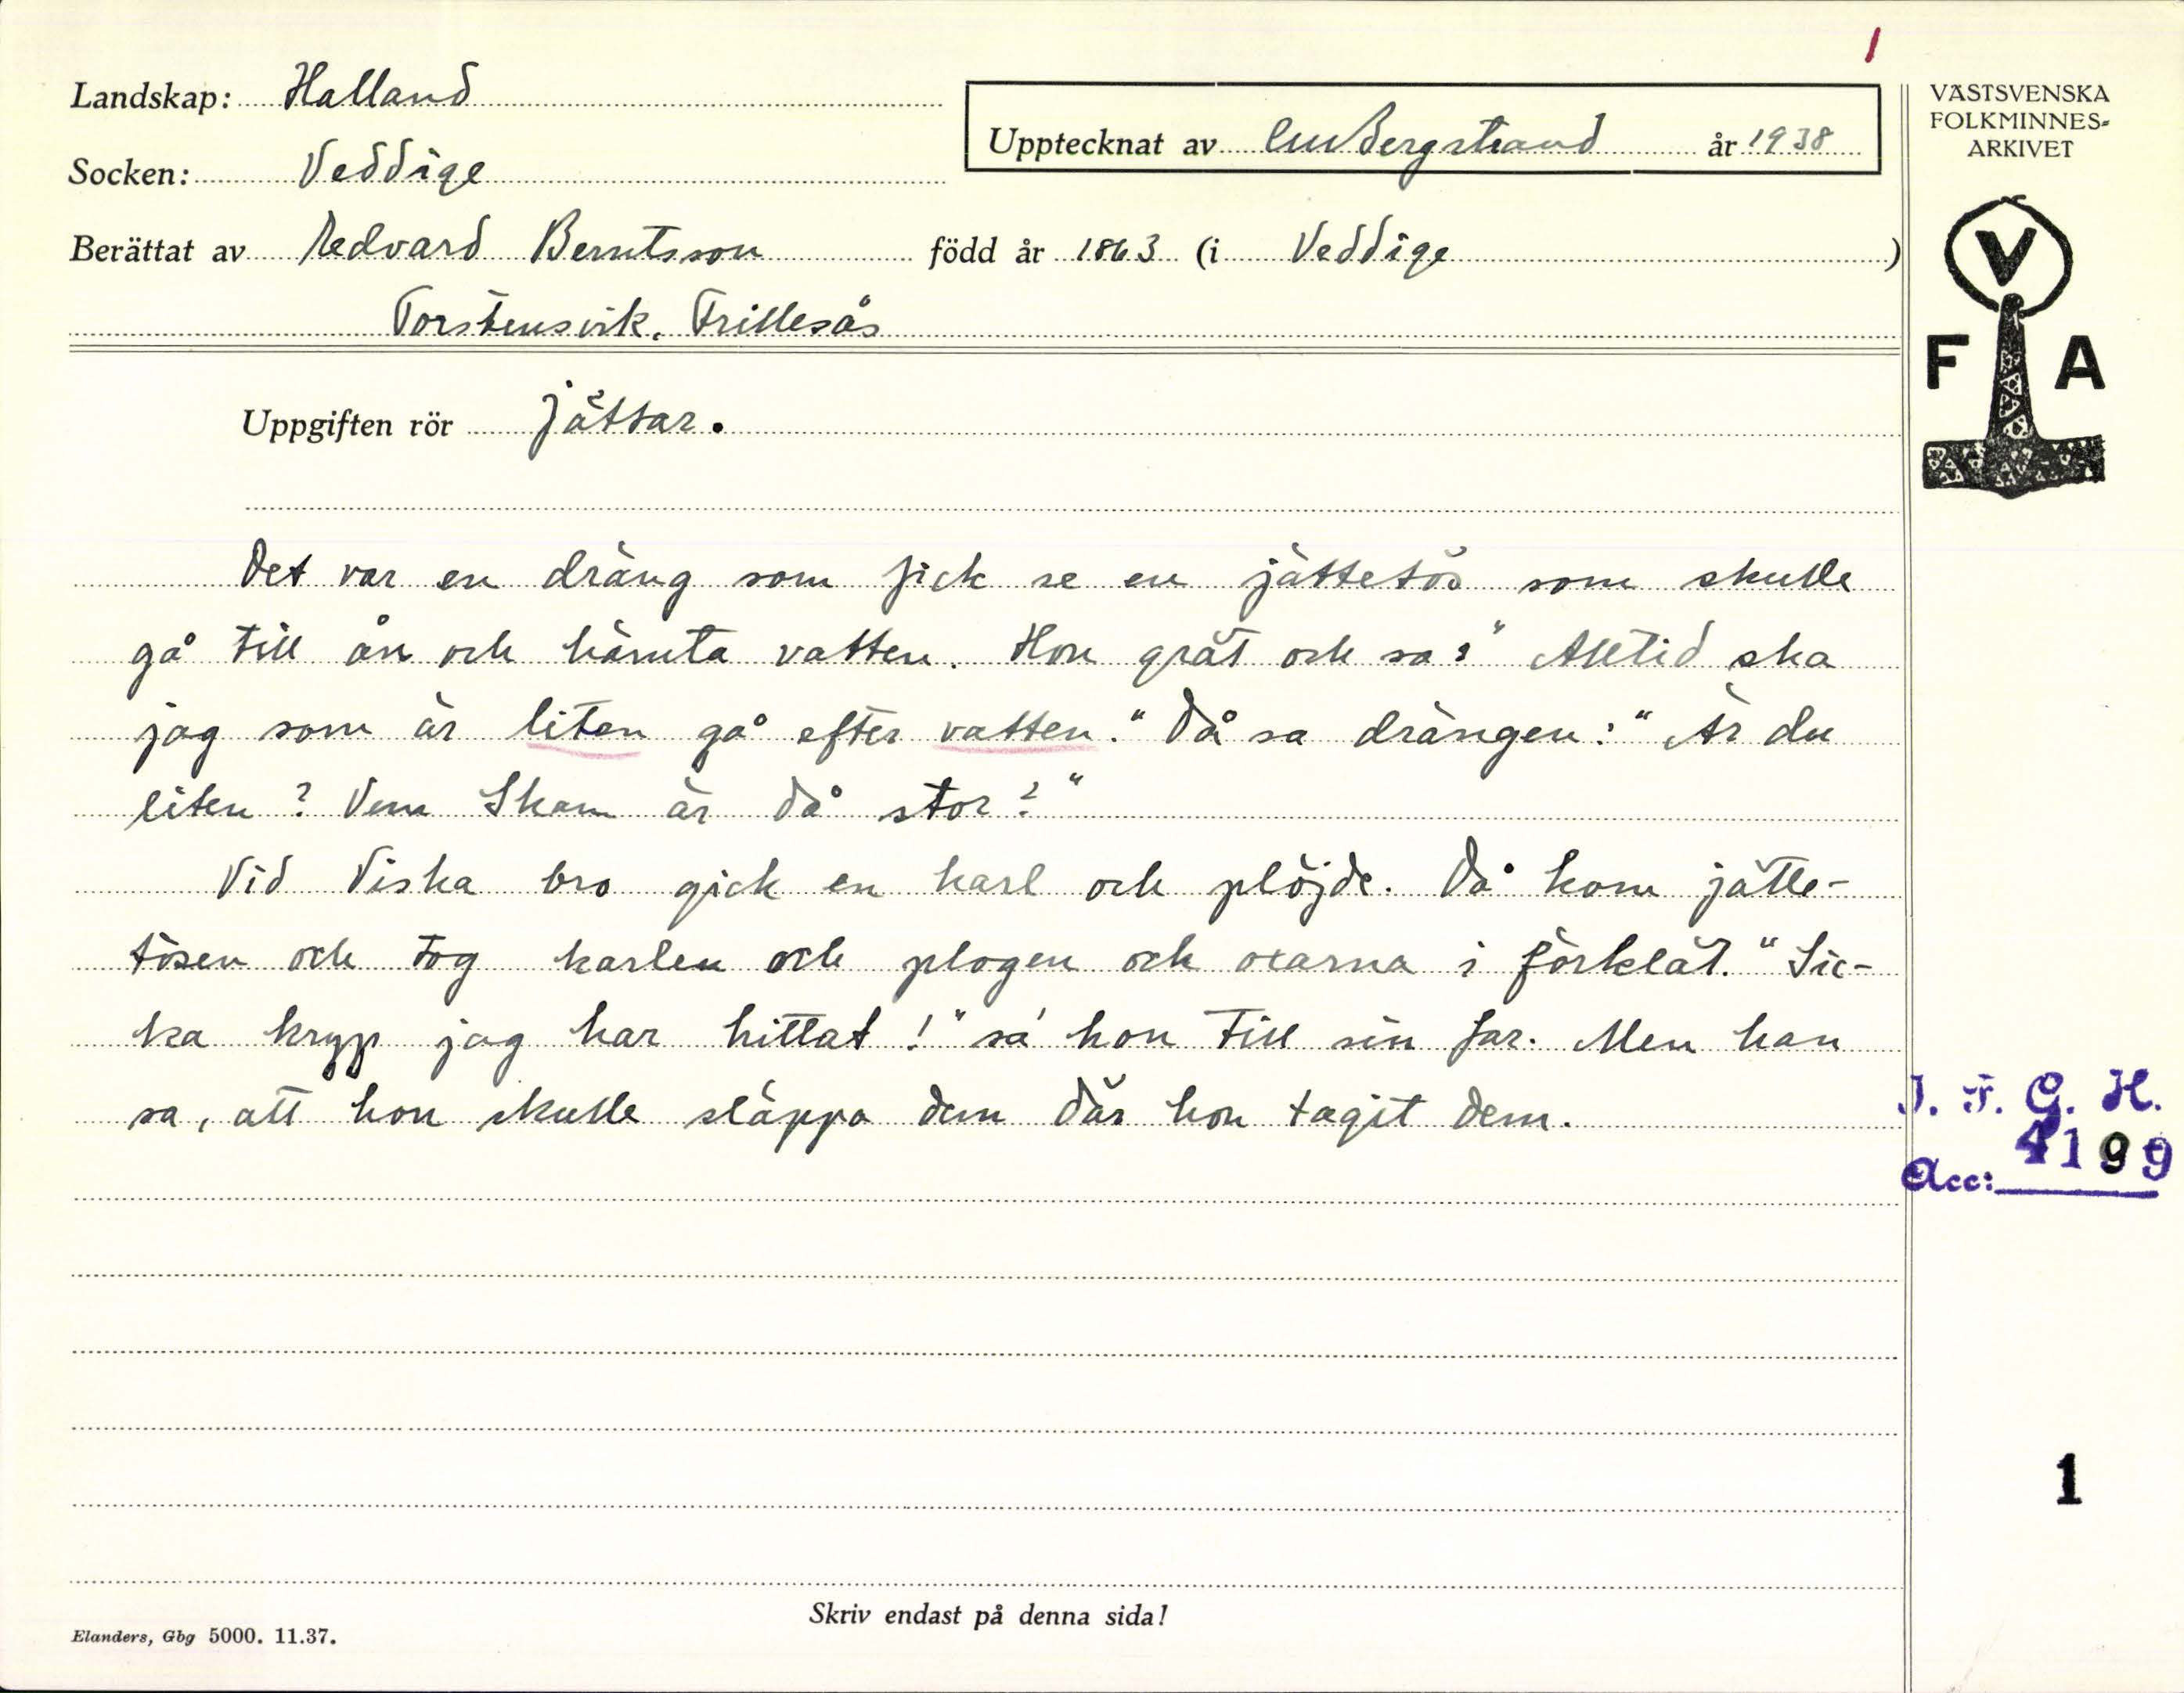 1
Landskap: Halland
Upptecknat av CMBergstrand år 1938
Socken: Veddige
Berättat av Edvard Berntsson född år 1863 (i Veddige)
Torstensvik, Frillesås
VÄSTSVENSKA
FOLKMINNES-
ARKIVET
V
F A
Uppgiften rör Jättar.
Det var en dräng som fick se en jättetös som skulle
gå till ån och hämta vatten. Hon grät och sa: "Alltid ska
jag som är liten gå efter vatten." Då sa drängen: "Är du
liten? Vem Skam är då stor?"
Vid Viska bro gick en karl och plöjde. Då kom jätte-
tösen och tog karlen och plogen och oxarna i förklät. "Sic-
ka kryp jag har hittat!" sa hon till sin far. Men han
sa, att hon skulle släppa dem där hon tagit dem.
I. F. G. H.
Acc: 4199
1
Skriv endast på denna sida!
Elanders, Gbg 5000. 11.37.